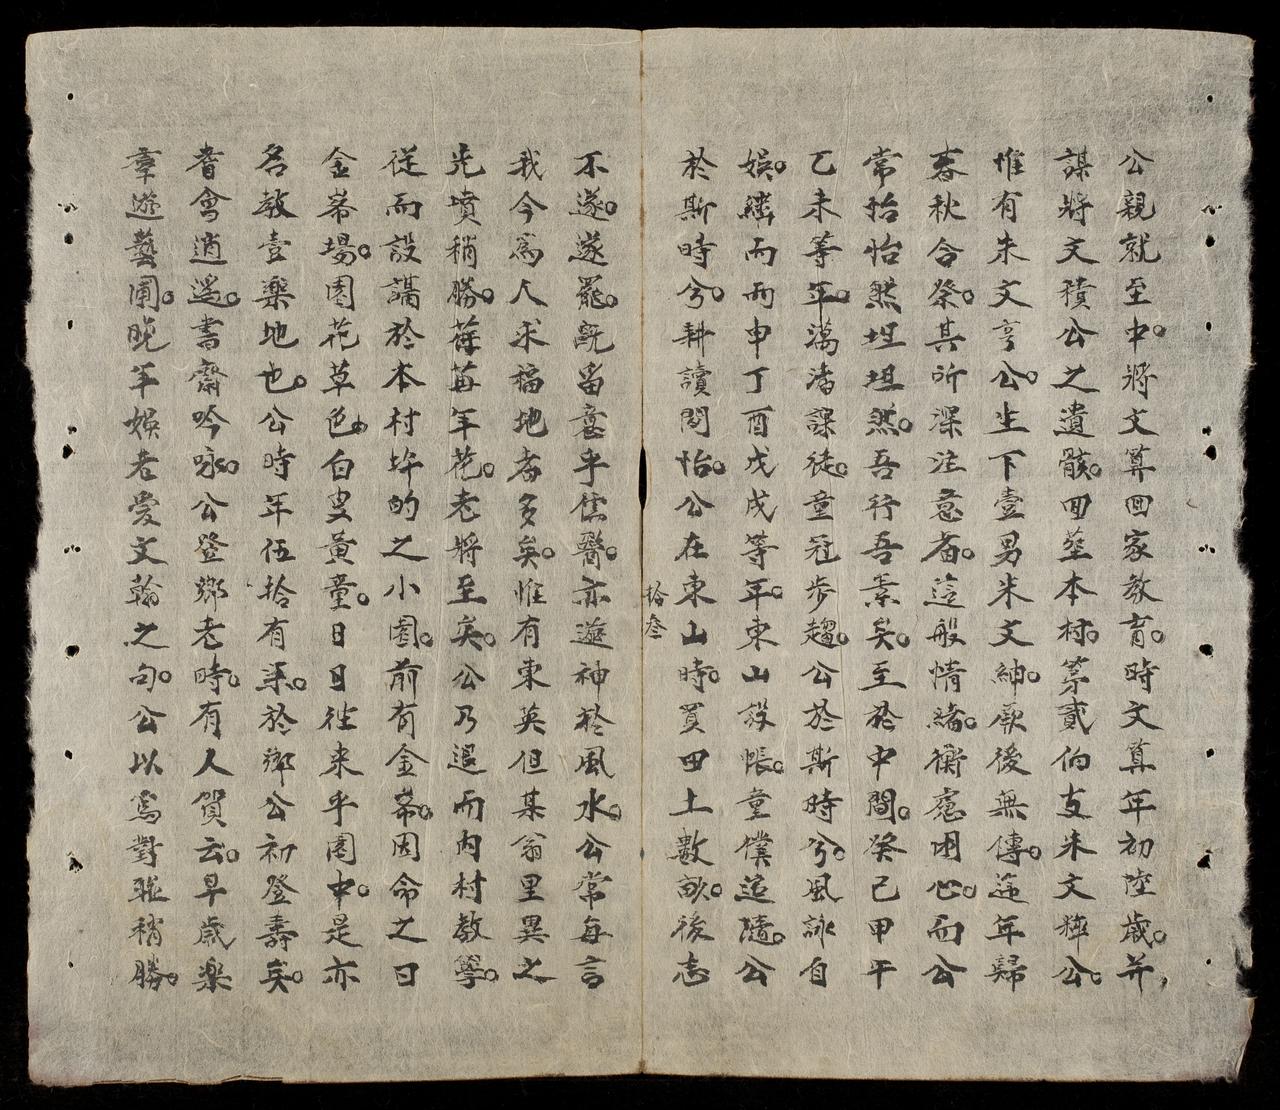 公親就至中。將文算回家教育。時文算年初陸歲。并
謀將文積公之遺骸。回塟本村。苐貳伯支朱文粹公。
惟有朱文亨公。生下壹男米文紳。厥後無傳。遞年歸
春秋合祭。其所深注意者。這般情緒。衡慮困心。而公
常怡怡然坦坦然。吾行吾素矣。至於中間。癸巳甲午
乙未等年。潙潘課徒。童冠步趨。公於斯時兮。風詠自
娛。繼而而申丁酉戊戌等年。東山設帳。童僕追隨。公
於斯時兮。耕讀問怡。公在東山時。買田土數畝。後志
拾叁
不遂。遂罷。既畱意乎儒醫。亦遊神於風水。公常每言
我今爲人求福地者多矣。惟有東英但某翁里異之
先墳稍勝。荏苒年花。老將至矣。公乃退而內村教學。
從而設講於本村㘰的之小園。前有金䓁。因命之曰
金䓁場。園花草色。白叟黃童。日日徃来乎園中。是亦
名教壹樂地也。公時年伍拾有柒。於鄉公初登壽矣。
耆會逍遥。書齋吟咏。公登鄉老時。有人賀云。早歲樂
羣遊藝圃。晚年娛老愛文翰之句。公以爲對聮稍勝。